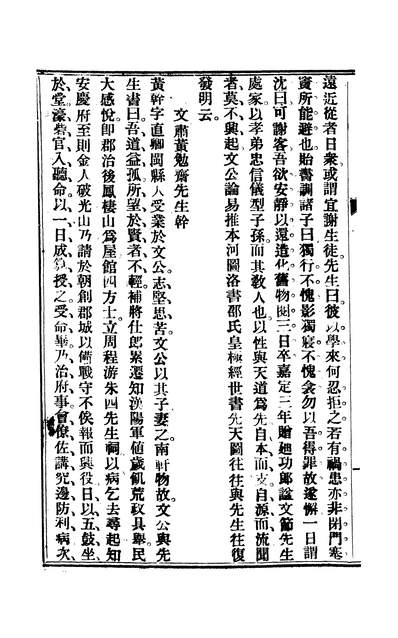 遠近從者日衆或謂宜謝生徒先生曰彼以學來何忍拒之若有禍患亦非閉門塞
竇所能避也貽書訓諸子曰獨行不愧影獨寢不愧衾勿以吾得罪故遂懈一日謂
沈曰可謝客吾欲安靜以還造化舊物閱三日卒嘉定三年贈廸功郞諡文節先生
處家以孝弟忠信儀型子孫而其敎人也以性與天道爲先自本而支自源而流聞
者莫不興起文公論易推本河圖洛書邵氏皇極經世書先天圖往往與先生往復
發明云
文肅黃勉齋先生幹
黃幹字直卿閩縣人受業於文公志堅思苦文公以其子妻之南軒物故文公與先
生書曰吾道益孤所望於賢者不輕補將仕郞累遷知漢陽軍値歲飢荒政具舉民
大感悅卽郡治後鳳棲山爲屋館四方士立周程游朱四先生祠以病乞去尋起知
安慶府至則金人破光山乃請於朝創郡城以備戰守不俟報而興役日以五鼓坐
於堂濠砦官入聽命以一日成算授之受命畢乃治府事會僚佐講究邊防利病次